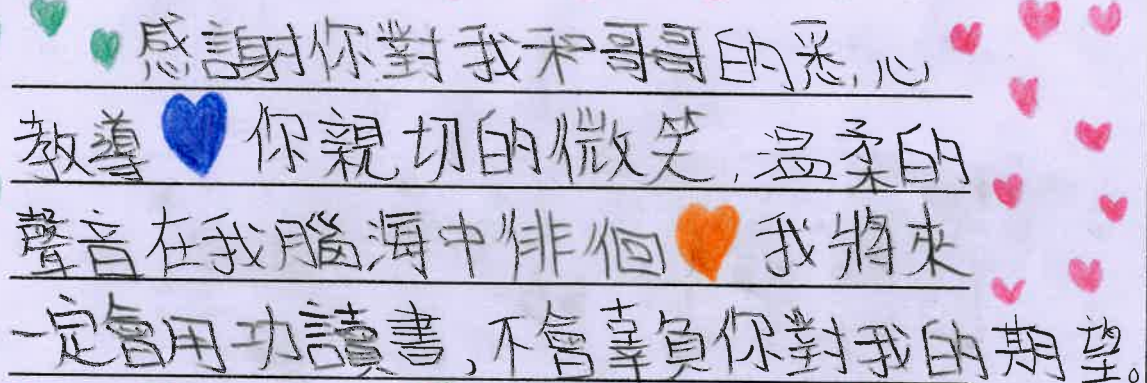 感謝你對我和哥哥的悉心
教導你親切的微笑,溫柔的
聲音在我腦海中徘徊我將來
一定會用功讀書,不會辜負你對我的期望。